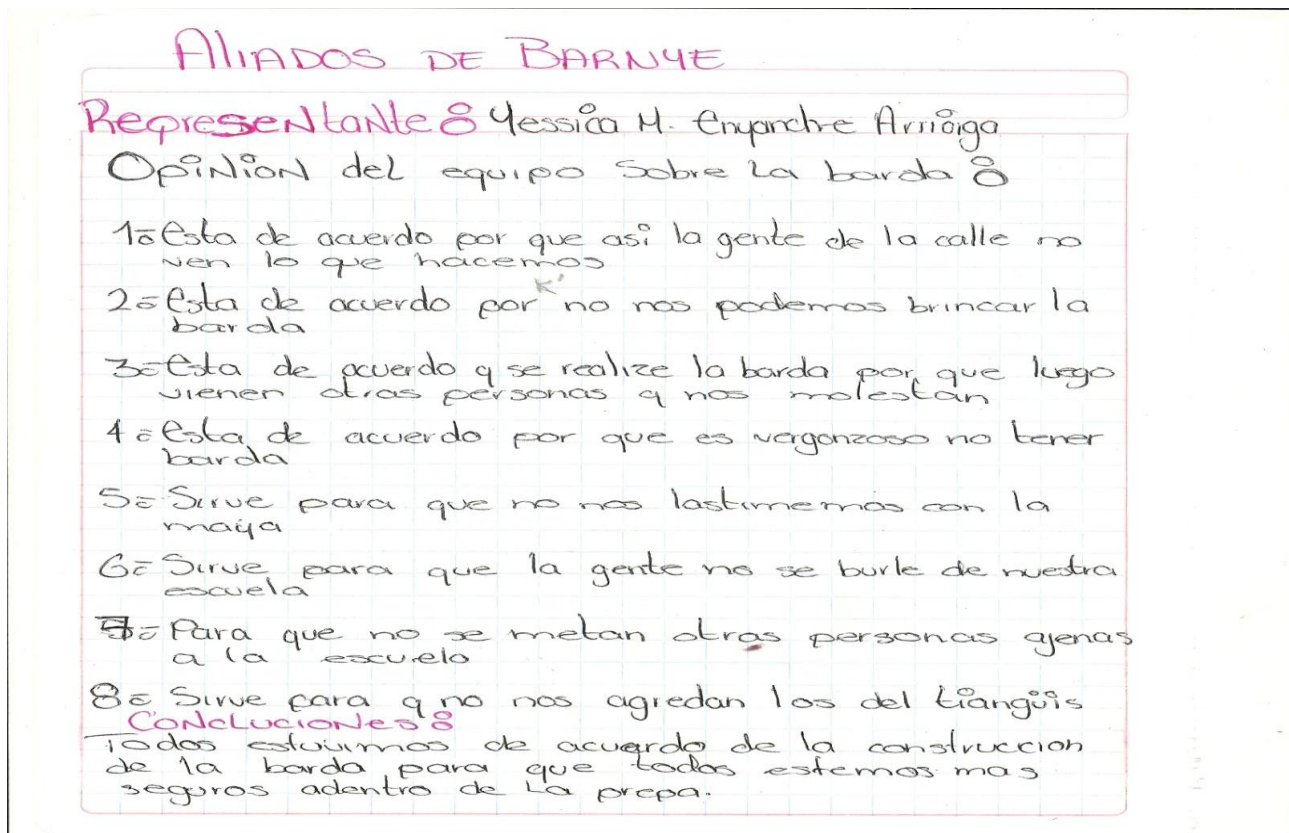 ALIADOS DE BARNYE
Representante: Yessica M. Arriaga
Opinion del equipo sobre la barda:
1.- esta de acuerdo por que así la gente de la calle no
ven lo que hacemos
2.- esta de acuerdo por no nos podemos brincar la
barda
3.- esta de acuerdo q se realize la barda por que luego
vienen otras personas q nos molestan
4.- esta de acuerdo por que es vergonzoso no tener
barda
5.- Sirve para que no nos lastimemos con la
maya
6.- Sirve para que la gente no se burle de nuestra
escuela
7.- Para que no se metan otras personas ajenas
a la escuela
8.- Sirve para q no nos agredan los del tianguis
CONCLUCIONES:
Todos estuvimos de acuerdo de la construccion
de la barda para que todos estemos mas
seguros adentro de la prepa.